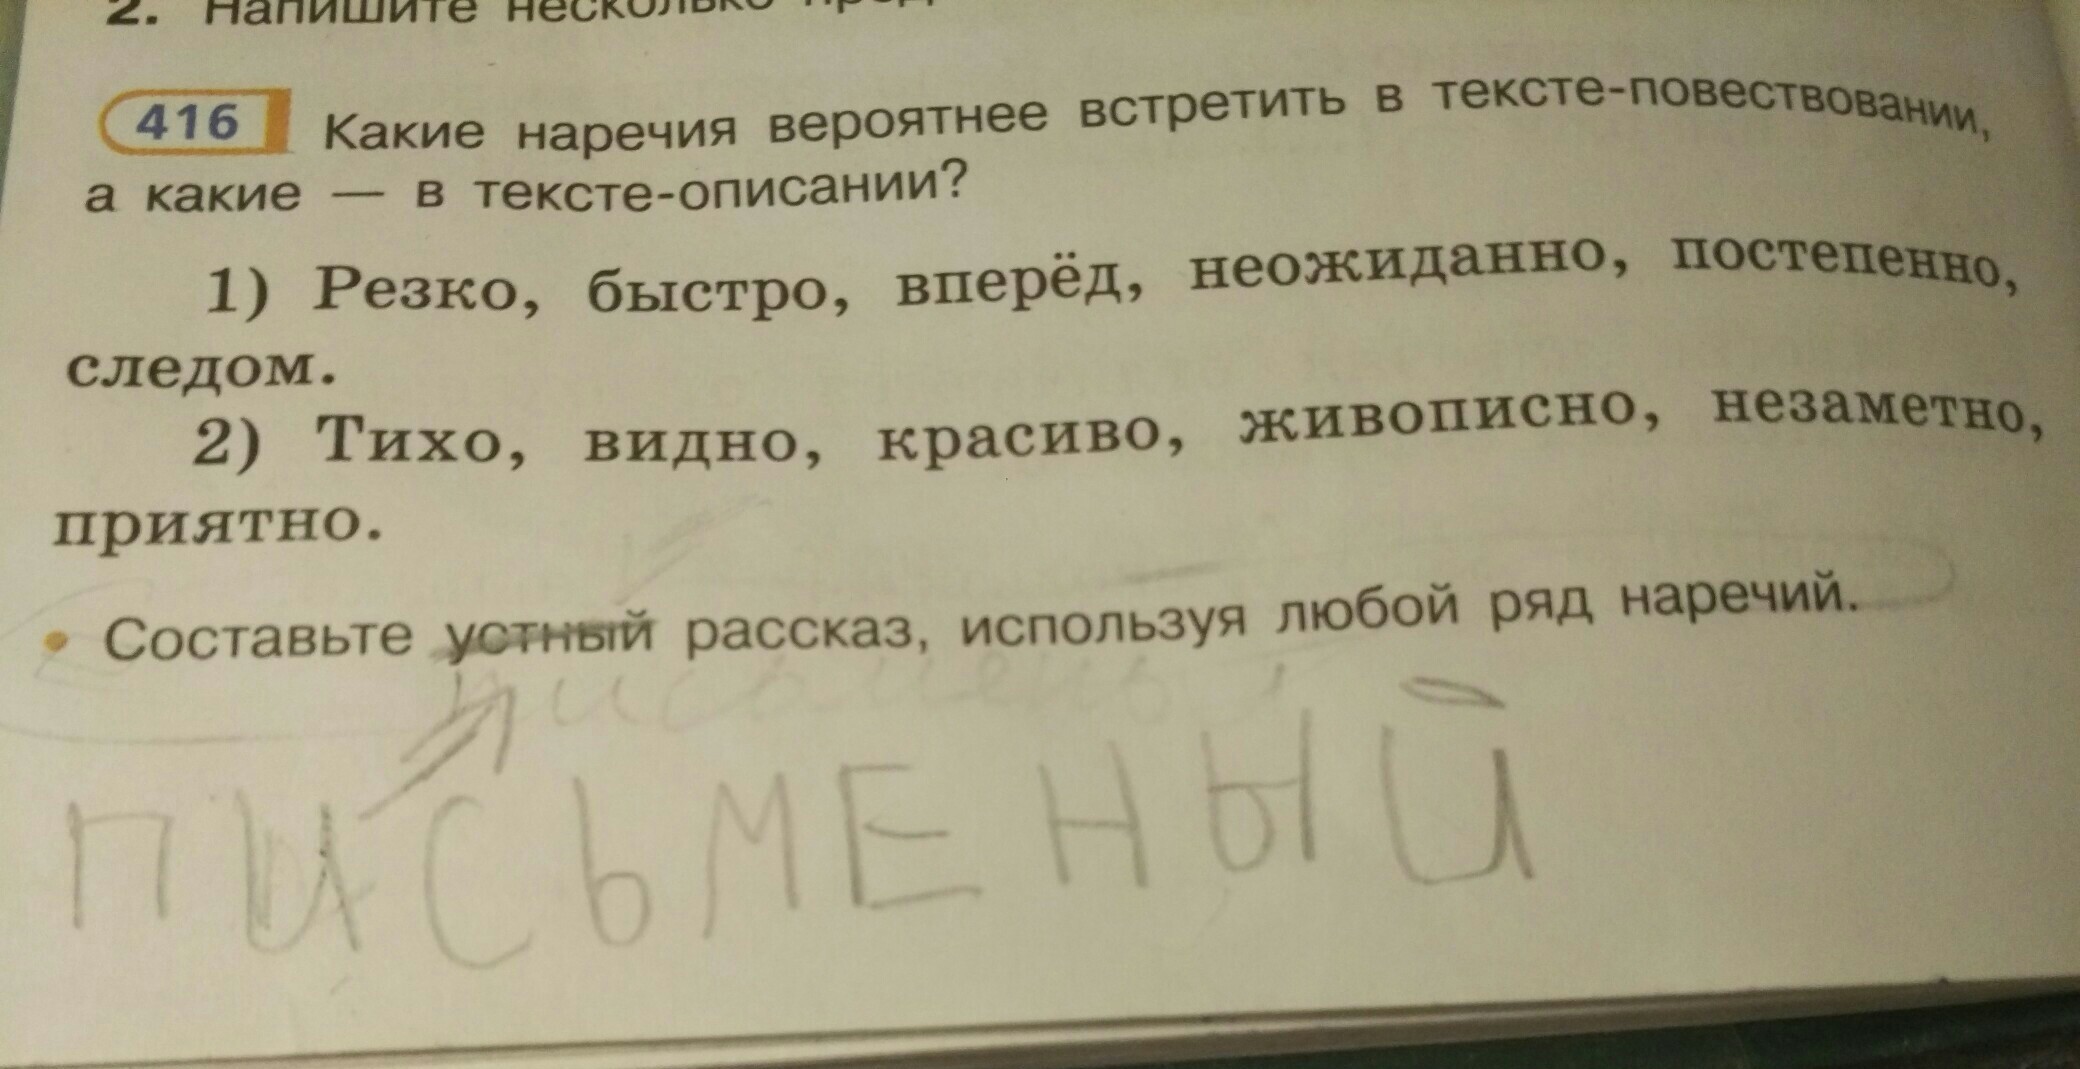 2. Напишите несколько
416 Какие наречия вероятнее встретить в тексте-повествовании,
а какие — в тексте-описании?
1) Резко, быстро, вперёд, неожиданно, постепенно,
следом.
2) Тихо, видно, красиво, живописно, незаметно,
приятно.
• Составьте устный рассказ, используя любой ряд наречий.
ПИСЬМЕНЫЙ